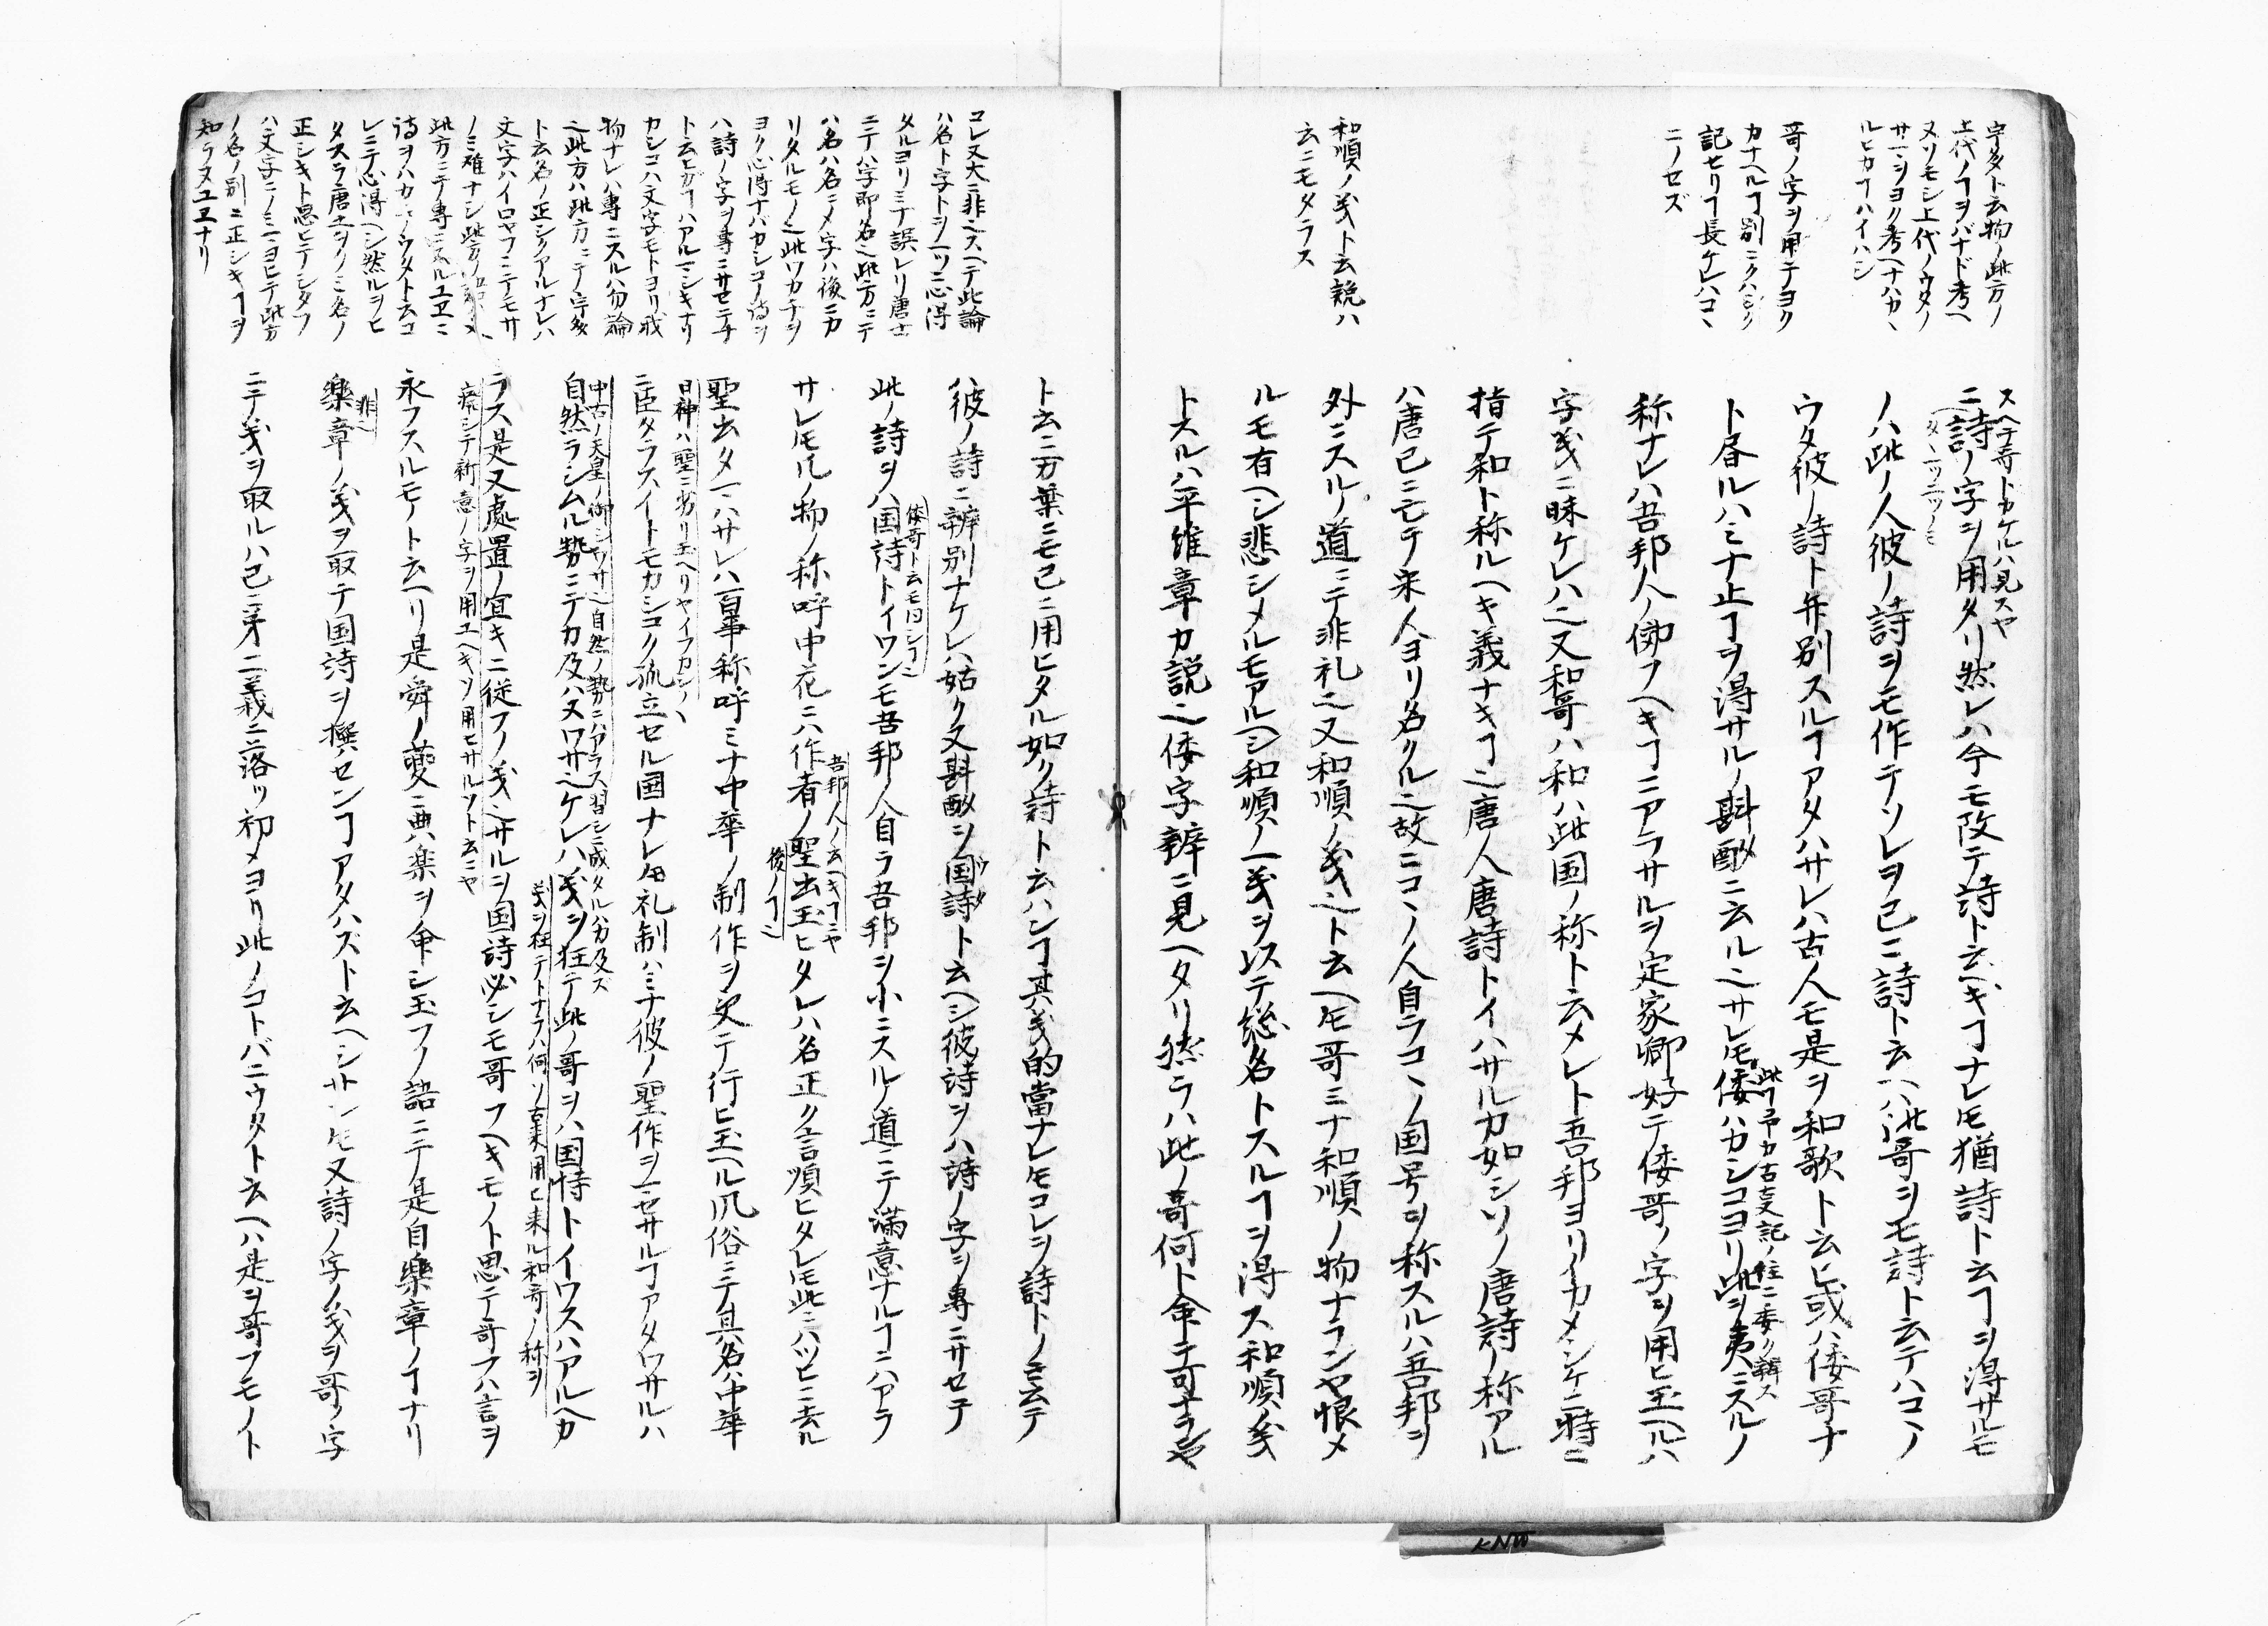 宇多ト云物ノ此方ノ
上代ノヿヲバナド考ヘ
ヌソモシ上代ノウタノ
サマヲヨク考ヘナハカヽ
ルヒカヿハイハシ
哥ノ字ヲ用テヨク
カナヘルヿ別ニクハシク
記セリヿ長ケレハコヽ
ニノセズ
和順ノ義ト云説ハ
云ニモタラス
スヘテ哥トカケルハ見スヤ
ニ詩ノ字ヲ用タリ然レハ今モ改テ詩ト云ヘキヿナレ𪜈猶詩ト云ヿヲ得サルモ
ノハ此ノ人彼ノ詩ヲモ作テソレヲ已ニ詩ト云ヘハ此哥ヲモ詩ト云テハコヽノ
ウタ彼ノ詩ト弁別スルヿアタハサレハ古人モ是ヲ和歌ト云ヒ或ハ倭哥ナ
ト唇ルハミナ止ヿヲ得サルノ斟酌ニ云ル也サレ𪜈倭ハカシコヨリ此ヲ夷ニスルノ
此ヿ予カ古支記ノ註ニ委ク辨ス
称ナレハ吾邦人ノ倣フヘキヿニアラサルヲ定家卿好テ倭哥ノ字ヲ用ヒ玉ヘルハ
字義ニ昧ケレハ也又和哥ハ和ハ此国ノ称ト云メレト吾邦ヨリイカメシケニ特ニ
指テ和ト称ルヘキ義ナキヿ也唐人唐詩トイハサルカ如シソノ唐詩ノ称アル
ハ唐已ニ亡テ宋ノ人ヨリ名クル也故ニコヽノ人自ラコヽノ国号ヲ称スルハ吾邦ヲ
外ニスルノ道ニテ非礼也又和順ノ義也ト云ヘ𪜈哥ミナ和順ノ物ナランヤ恨メ
ルモ有ヘシ悲シメルモアルヘシ和順ノ一義ヲ以テ総名トスルヿヲ得ス和順ノ義
トスルハ平維章カ説也倭字辨ニ見ヘタリ然ラハ此ノ哥何ト命テ可ナラムヤ
コレ又大ニ非也スヘテ此論
ハ名ト字トヲ一ツニ心得
タルヨリミナ誤レリ唐土
ニテハ字即名也此方ニテ
ハ名ハ名ニメ字ハ後ニカ
リタルモノ也此ワカチヲ
ヨク心得ナバカシコノ詩ヲ
ハ詩ノ字ヲ專ニサセテナ
ト云ヒガヿハアルマシキナリ
カシコハ文字モトヨリ我
物ナレハ專ニスルハ勿論
也此方ハ此方ニテ宇多
ト云名ノ正シクアルナレハ
文字ハイロヤフニテモサ
ノミ難ナシ
此方ニテ專ニスルユヱニ
詩ヲハカラウタト云コ
レニテ心得ヘシ然ルヲヒ
タスラ唐土ヲノミ名ノ
正シキト思ヒテシタフ
ハ文字ニノミヨヒテ此方
ノ名ノ別ニ正シキヿヲ
知ラヌユヱナリ
ト云ニ万葉ニモ已ニ用ヒタル如ク詩ト云ハンヿ其義的當ナレ𪜈コレヲ詩トノミ云テ
ハ彼ノ詩ニ辨別ナケレハ姑ク又斟酌ヲ国詩ト云ヘシ彼詩ヲハ詩ノ字ヲ專ニサセテ
ウタ
倭哥ト云モ同シヿ也
此ノ詩ヲハ国詩トイワンモ吾邦ノ人自ラ吾邦ヲ小ニスルノ道ニテ満意ナルヿニハアラ
サレ𪜈凡ノ物ノ称呼中花ニハ作者ノ聖出玉ヒタレハ名正ク言順ヒタレ𪜈此ニハツヒニ去ル
吾邦人ノ云ヘキヿニヤ
後ノヿ也
聖出タマハサレハ百事称呼ミナ中華ノ制作ヲ受テ行ヒ玉ヘル凡俗ニテ其名ハ中華
日神ハ聖ニ劣リ玉ヘリヤイフカシノヽ
ニ臣タラスイトモカシコク孤立セル国ナレ𪜈礼制ハミナ彼ノ聖作ヲマセサルヿアタワサルハ
中古ノ天皇ノ御シワサ也自然ノ勢ニハアラス習シニ成タルハ力及ズ
自然ラシムル勢ニテカ及ハヌワサ也ケレハ義ヲ狂テ此ノ哥ヲハ国詩トイワスハアルヘカ
義ヲ狂テトナラハ何ソ古来用ヒ来ル和哥ノ称ヲ
ラス是又處置ノ宜キニ従フノ義也サルヲ国詩必シモ哥フヘキモノト思テ哥フハ言ヲ
廃シテ新意ノ字ヲ用ユヘキソ用ヒサルソト云ニヤ
永フスルモノト云ヘリ是舜ノ夔ニ典楽ヲ命シ玉フノ詔ニテ是自樂章ノヿナリ
非也
樂章ノ義ヲ取テ国詩ヲ撰センヿアタハズト云ヘシサレ𪜈又詩ノ字ノ義ヲ哥ノ字
ニテ義ヲ取ルハ已ニ第二義ニ落ツ初メヨリ此ノコトバニウタト云ヘハ是ヲ哥フモノト
KNW